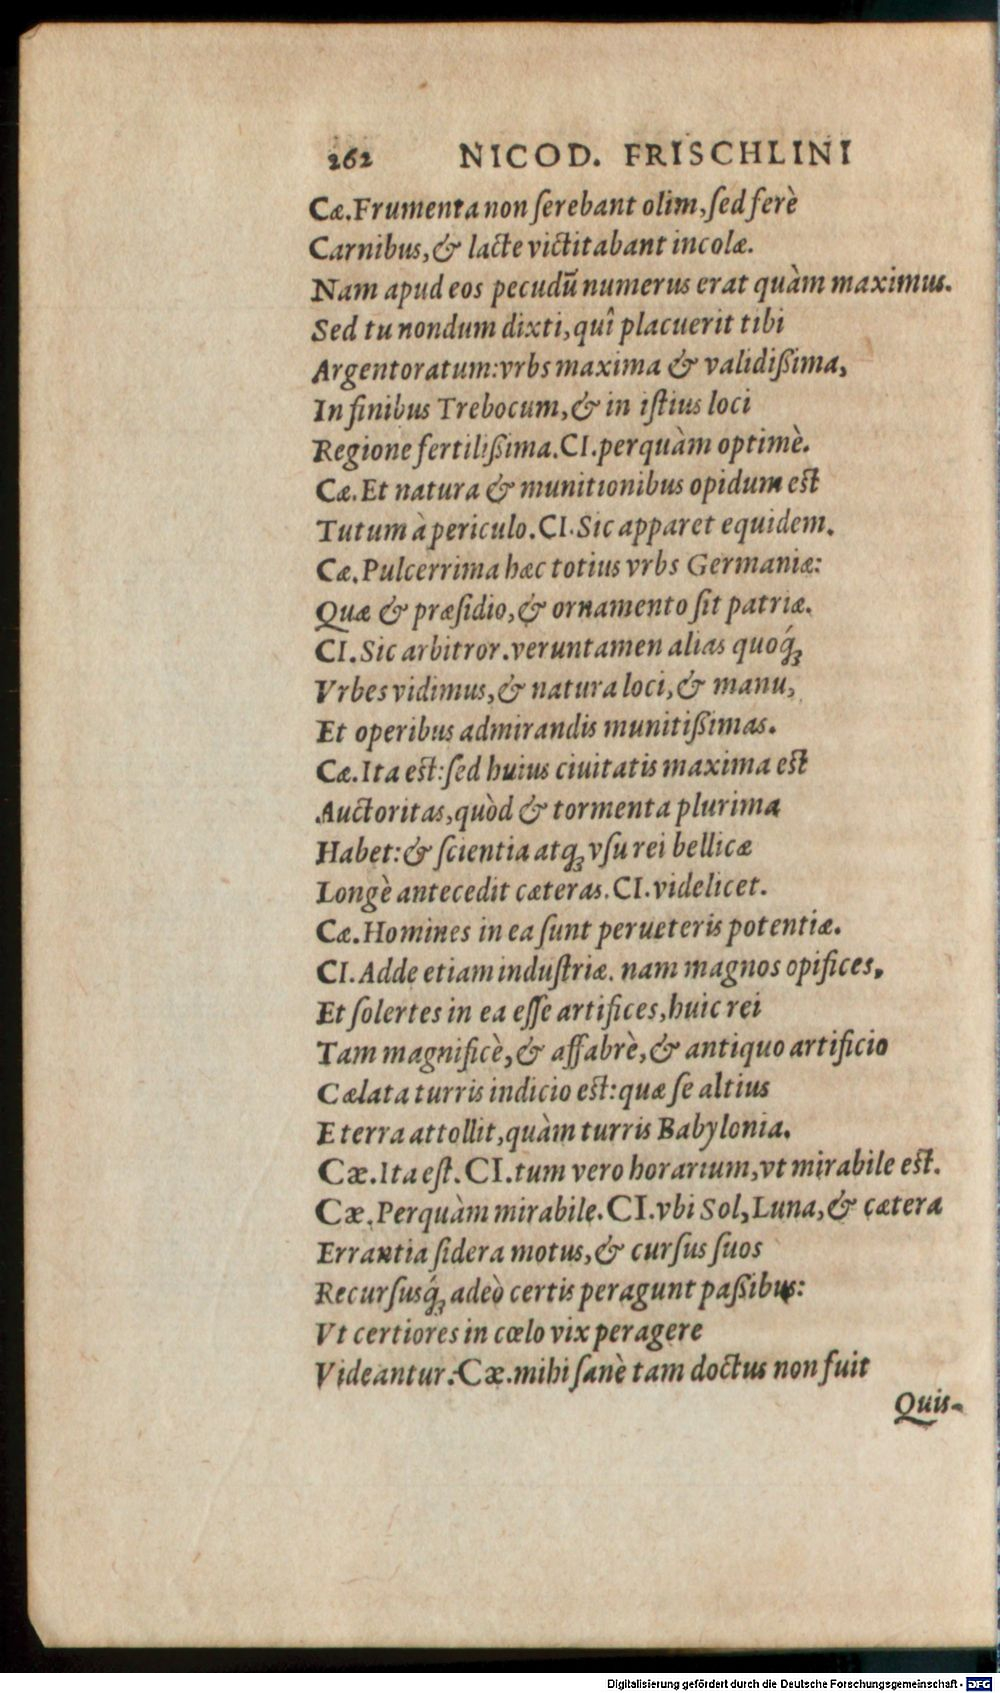 262 NICOD. FRISCHLINI
Cæ. Frumenta non ſerebant olim, ſed ferè
Carnibus, & lacte victitabant incolæ.
Nam apud eos pecudū numerus erat quàm maximus.
Sed tu nondum dixti, quî placuerit tibi
Argentoratum: vrbs maxima & validiſſima,
In finibus Trebocum, & in iſtius loci
Regione fertiliſſima. CI. perquàm optimè.
Cæ. Et natura & munitionibus opidum est
Tutum à periculo. CI. Sic apparet equidem.
Cæ. Pulcerrima hæc totius vrbs Germaniæ:
Quæ & præſidio, & ornamento ſit patriæ.
CI. Sic arbitror. veruntamen alias quoq́ꝫ
Vrbes vidimus, & natura loci, & manu,
Et operibus admirandis munitiſſimas.
Cæ. Ita est: ſed huius ciuitatis maxima est
Auctoritas, quòd & tormenta plurima
Habet: & ſcientia atqꝫ vſu rei bellicæ
Longè antecedit cæteras. CI. videlicet.
Cæ. Homines in ea ſunt perueteris potentiæ.
CI. Adde etiam induſtriæ. nam magnos opifices,
Et ſolertes in ea eſſe artifices, huic rei
Tam magnificè, & affabrè, & antiquo artificio
Cælata turris indicio est: quæ ſe altius
E terra attollit, quàm turris Babylonia.
Cæ. Ita eſt. CI. tum vero horarium, vt mirabile est.
Cæ. Perquàm mirabile. CI. vbi Sol, Luna, & cætera
Errantia ſidera motus, & curſus ſuos
Recurſusq́ꝫ adeò certis peragunt paſſibus:
Vt certiores in cœlo vix peragere
Videantur. Cæ. mihi ſanè tam doctus non fuit
Quis-
Digitalisierung gefördert durch die Deutsche Forschungsgemeinschaft - DFG